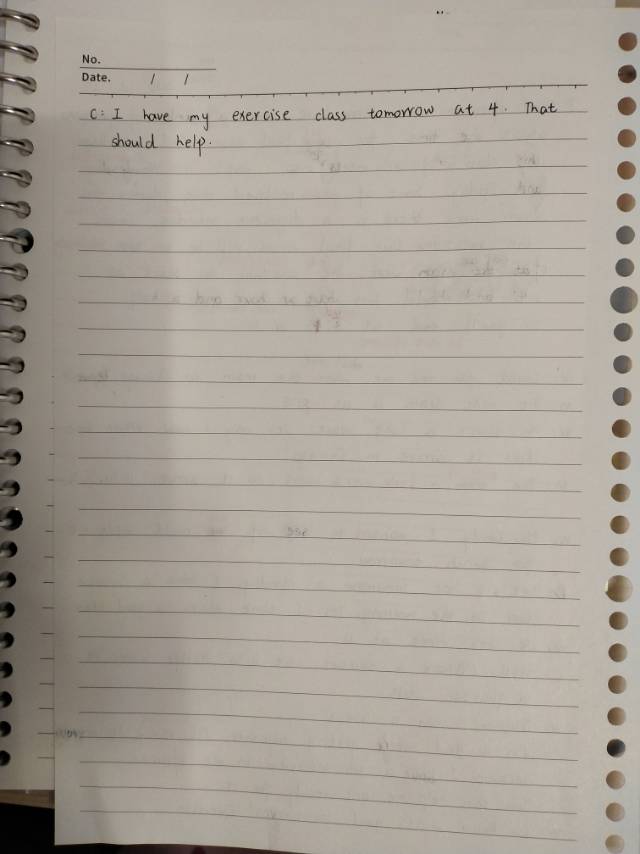 No.
Date. / /
C: I have my exercise class tomorrow at 4. That
should help.